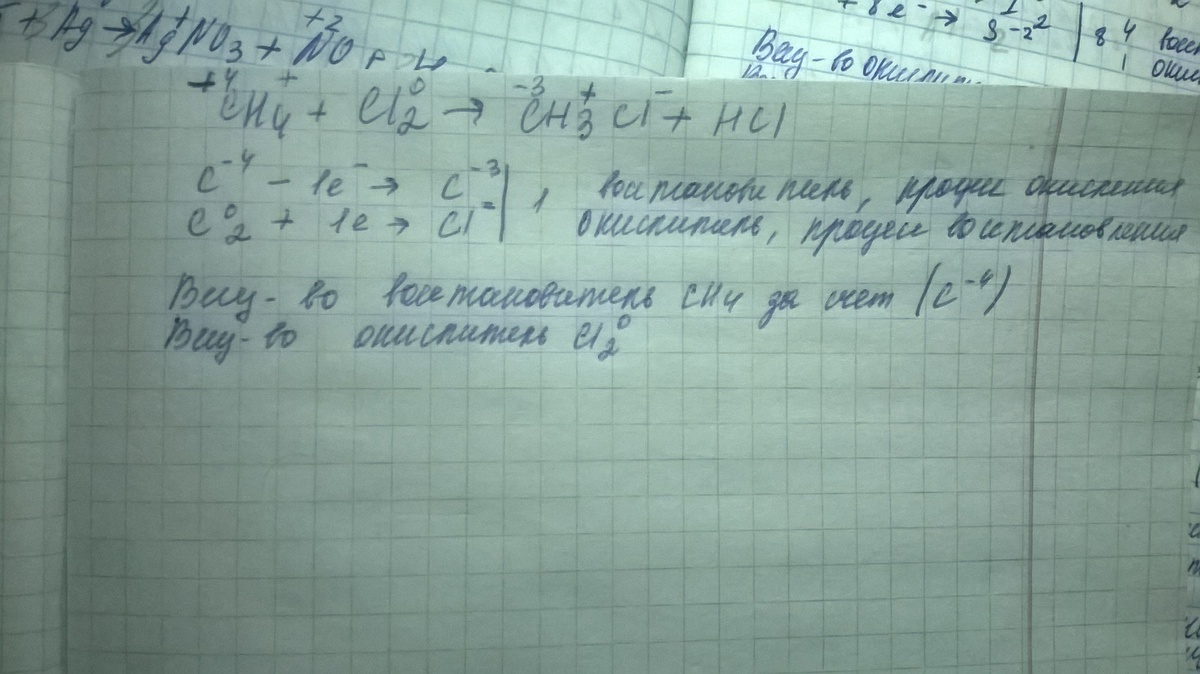 + Ag → Ag⁺NO₃ + N⁺²O +
+ 8e⁻ → S⁻² | 8 4
Вещ-во окислит
1
⁺⁴CH₄⁺ + Cl₂⁰ → C⁻³H₃⁺Cl⁻ + HCl
C⁻⁴ – 1e⁻ → C⁻³ | 1 востановитель, процес окисления
C⁰₂ + 1e → Cl⁻ | окислитель, процес востановления
Вещ-во востановитель CH₄ за счет (C⁻⁴)
Вещ-во окислитель Cl₂⁰